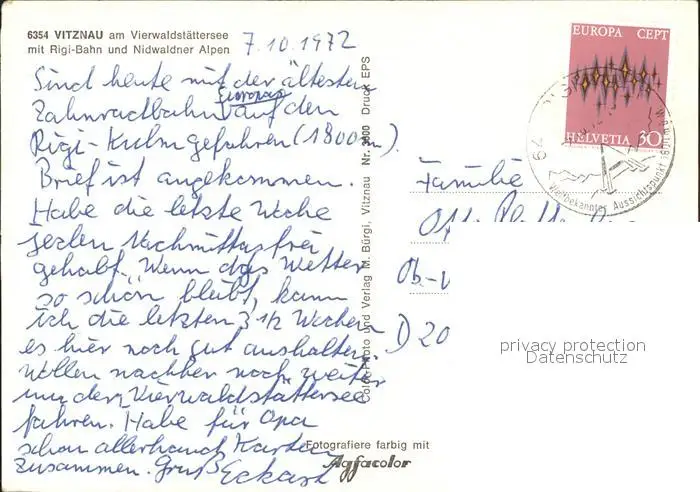 6354 VITZNAU am Vierwaldstättersee
mit Rigi-Bahn und Nidwaldner Alpen
7.10.1972
Sind heute mit der ältesten
Europas
Zahnradbahn auf den
Rigi-Kulm gefahren (1800 m).
Brief ist angekommen.
Habe die letzte Woche
jeden Nachmittag frei
gehabt. Wenn das Wetter
so schön bleibt, kann
ich die letzten 3 1/2 Wochen
es hier noch gut aushalten.
Wollen nachher noch weiter
um den Vierwaldstättersee
fahren. Habe für Opa
schon allerhand Karten
zusammen. Gruß Eckart
Color-Photo und Verlag M. Bürgi, Vitznau Nr. 3600 Druck EPS
Fotografiere farbig mit
Agfacolor
EUROPA CEPT
HELVETIA 30
Weltbekannter Aussichtspunkt 1800 m
Familie
Ob-
D 20
privacy protection
Datenschutz